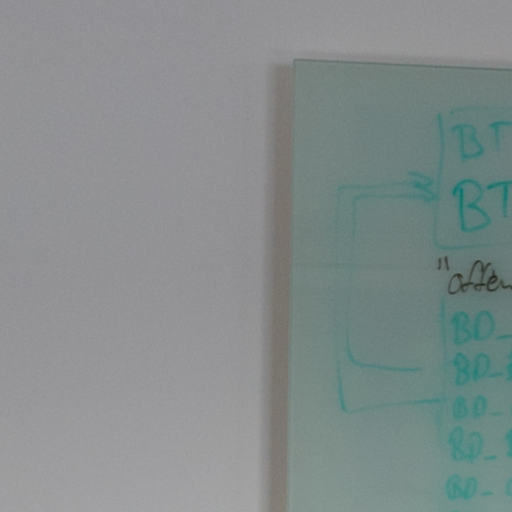 BT
BT
"offen
BD_
BD_
BD_
BD_
BD_